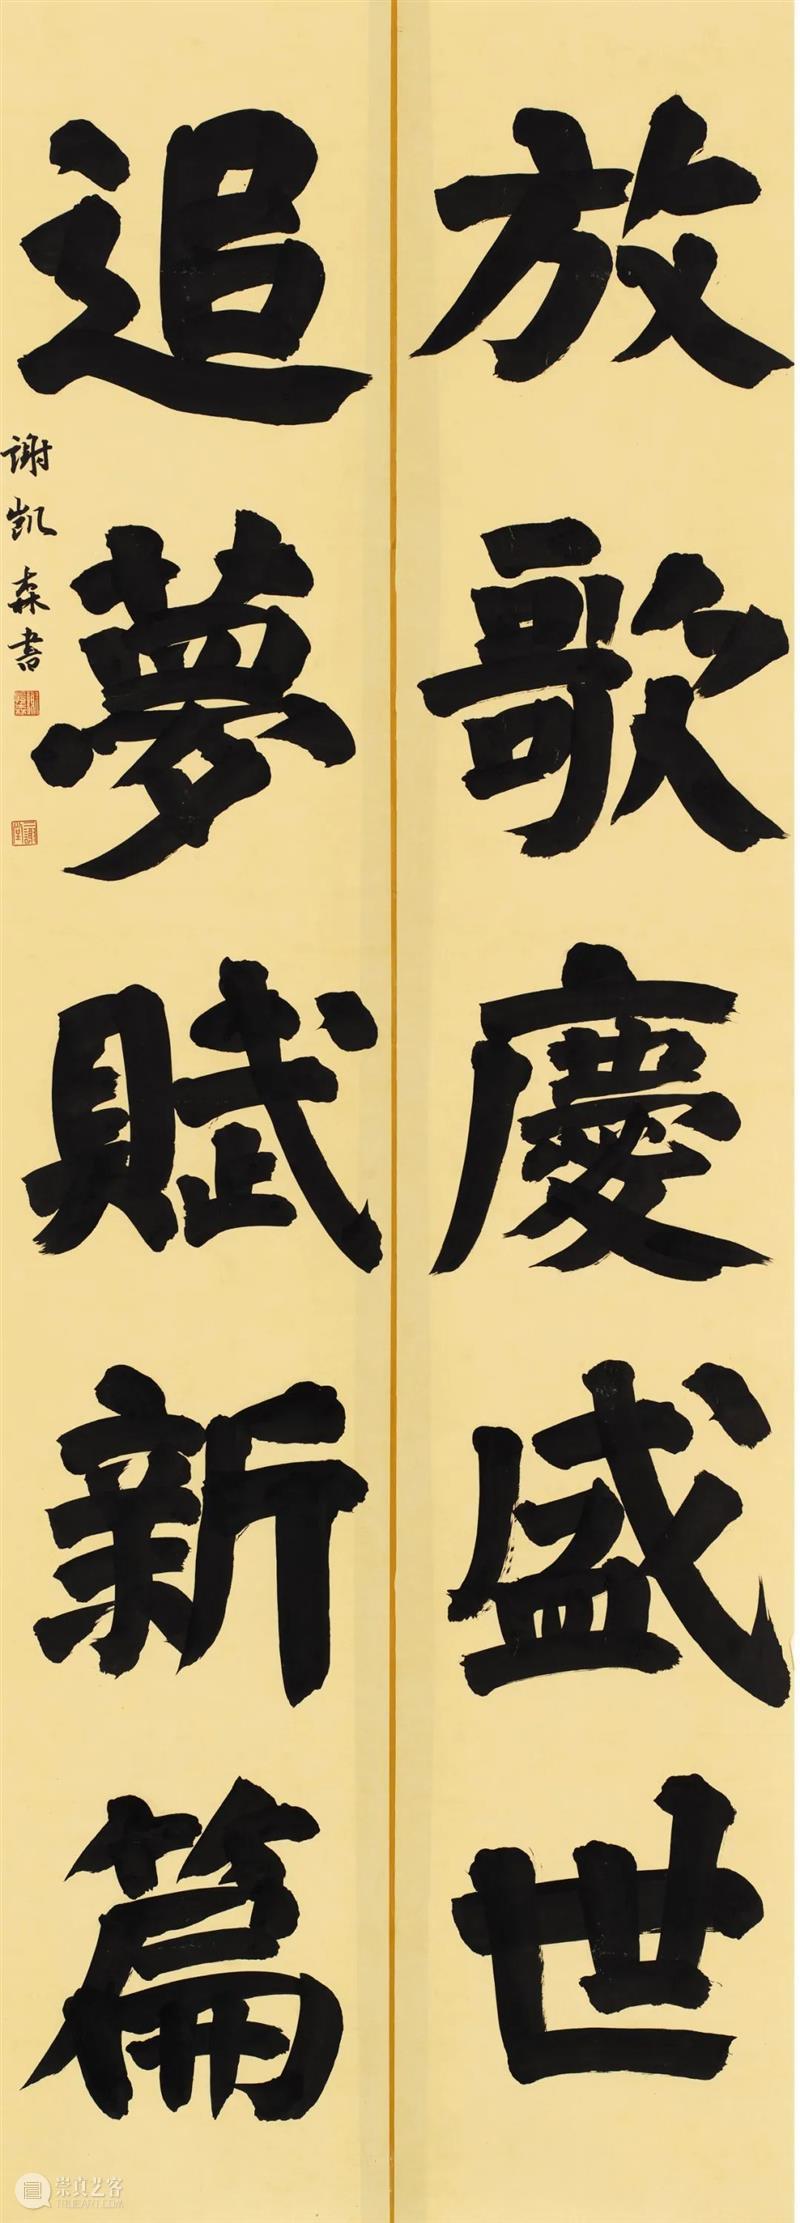 放歌慶盛世
追夢賦新篇
谢凯森書
崇真艺客
TRUEART.COM